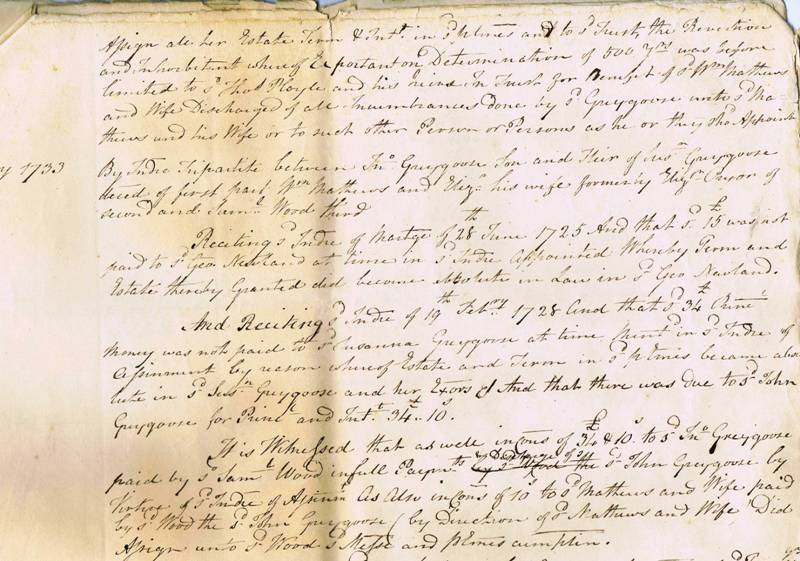 Assign all her Estate Term & Intt. in sd. pEmes and to sd Trust, the Reversion
and Inheritence whereof Expectant on Determination of 500 yrs was before
limited to sd Thos. Playle and his heirs In Trust for Benefit of sd Wm Mathews
and Wife Discharged of all Incumbrances Done by sd Greygoose unto sd Ma
thews and his Wife or to such other Person or Persons as he or they shod. Appoint
y 1733
By Indre Tripartite between Jno Greygoose Son and Heir of Susa Greygoose
deced of first part, Wm. Mathews and Eliza. his wife formerly Eliza. of
second and Saml. Wood third
Reciting sd Indre of Mortge of 28th June 1725 And that sd £15 was not
paid to sd Geo. Newland at time in sd Indre Appointed Whereby Term and
Estate thereby Granted did become Absolute in Law in sd Geo Newland.
And Reciting sd Indre of 19th Febry 1728 And that sd 34£ Princl
money was not paid to sd Susanna Greygoose at time in sd Indre of
Assinment by reason whereof Estate and Term in sd pEmes became abso
lute in sd Susn Greygoose and her Exors & And that there was due to sd John
Greygoose for Princl and Intt. 34£.. 10s.
It is Witnessed that as well in cons of £34 & 10s. to sd Jno Greygoose
paid by sd Saml Wood in full Paymt & Discharge of sd by sd Wood the sd John Greygoose by
Virtue of sd Indre of Assinmt As Also in cons of 10s to sd Mathews and Wife paid
by sd Wood the sd John Greygoose (by Direction of sd Mathews and Wife) Did
Assign unto sd Wood sd Messe and pEmes cumptin.